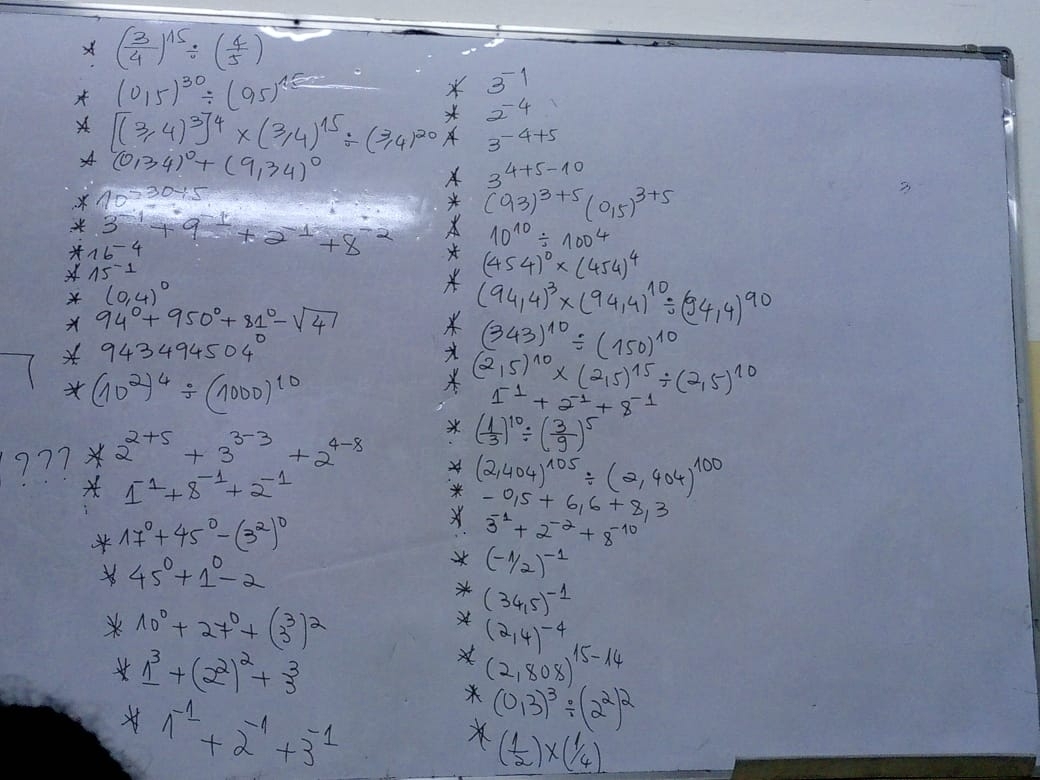 * (3/4)^15 ÷ (4/5)
* (0,5)^30 ÷ (0,5)^15
* [(3,4)^3]^4 × (3,4)^15 ÷ (3,4)^20
* (0,34)^0 + (9,34)^0
* 10^-30+5
* 3^-1 + 9^-1 + 2^-1 + 8^-2
* 16^-4
* 15^-1
* (0,4)^0
* 94^0 + 950^0 + 81^0 - √4
* 943494504^0
* (10^2)^4 ÷ (1000)^10
???? * 2^2+5 + 3^3-3 + 2^4-8
* 1^-1 + 8^-1 + 2^-1
* 17^0 + 45^0 - (3^2)^0
* 45^0 + 1^0 - 2
* 10^0 + 27^0 + (3/3)^2
* 1^3 + (2^2)^2 + 3/3
* 1^-1 + 2^-1 + 3^-1
* 3^-1
* 2^-4
* 3^-4+5
* 3^4+5-10
* (0,3)^3+5 (0,5)^3+5
* 10^10 ÷ 100^4
* (454)^0 × (454)^4
* (94,4)^3 × (94,4)^10 ÷ (94,4)^90
* (343)^10 ÷ (150)^10
* (2,5)^10 × (2,5)^15 ÷ (2,5)^10
* 1^-1 + 2^-1 + 8^-1
* (1/3)^10 ÷ (3/9)^5
* (2,404)^105 ÷ (2,404)^100
* -0,5 + 6,6 + 8,3
* 3^-1 + 2^-2 + 8^-10
* (-1/2)^-1
* (34,5)^-1
* (2,4)^-4
* (2,808)^15-14
* (0,3)^3 ÷ (2^2)^2
* (1/2) × (1/4)